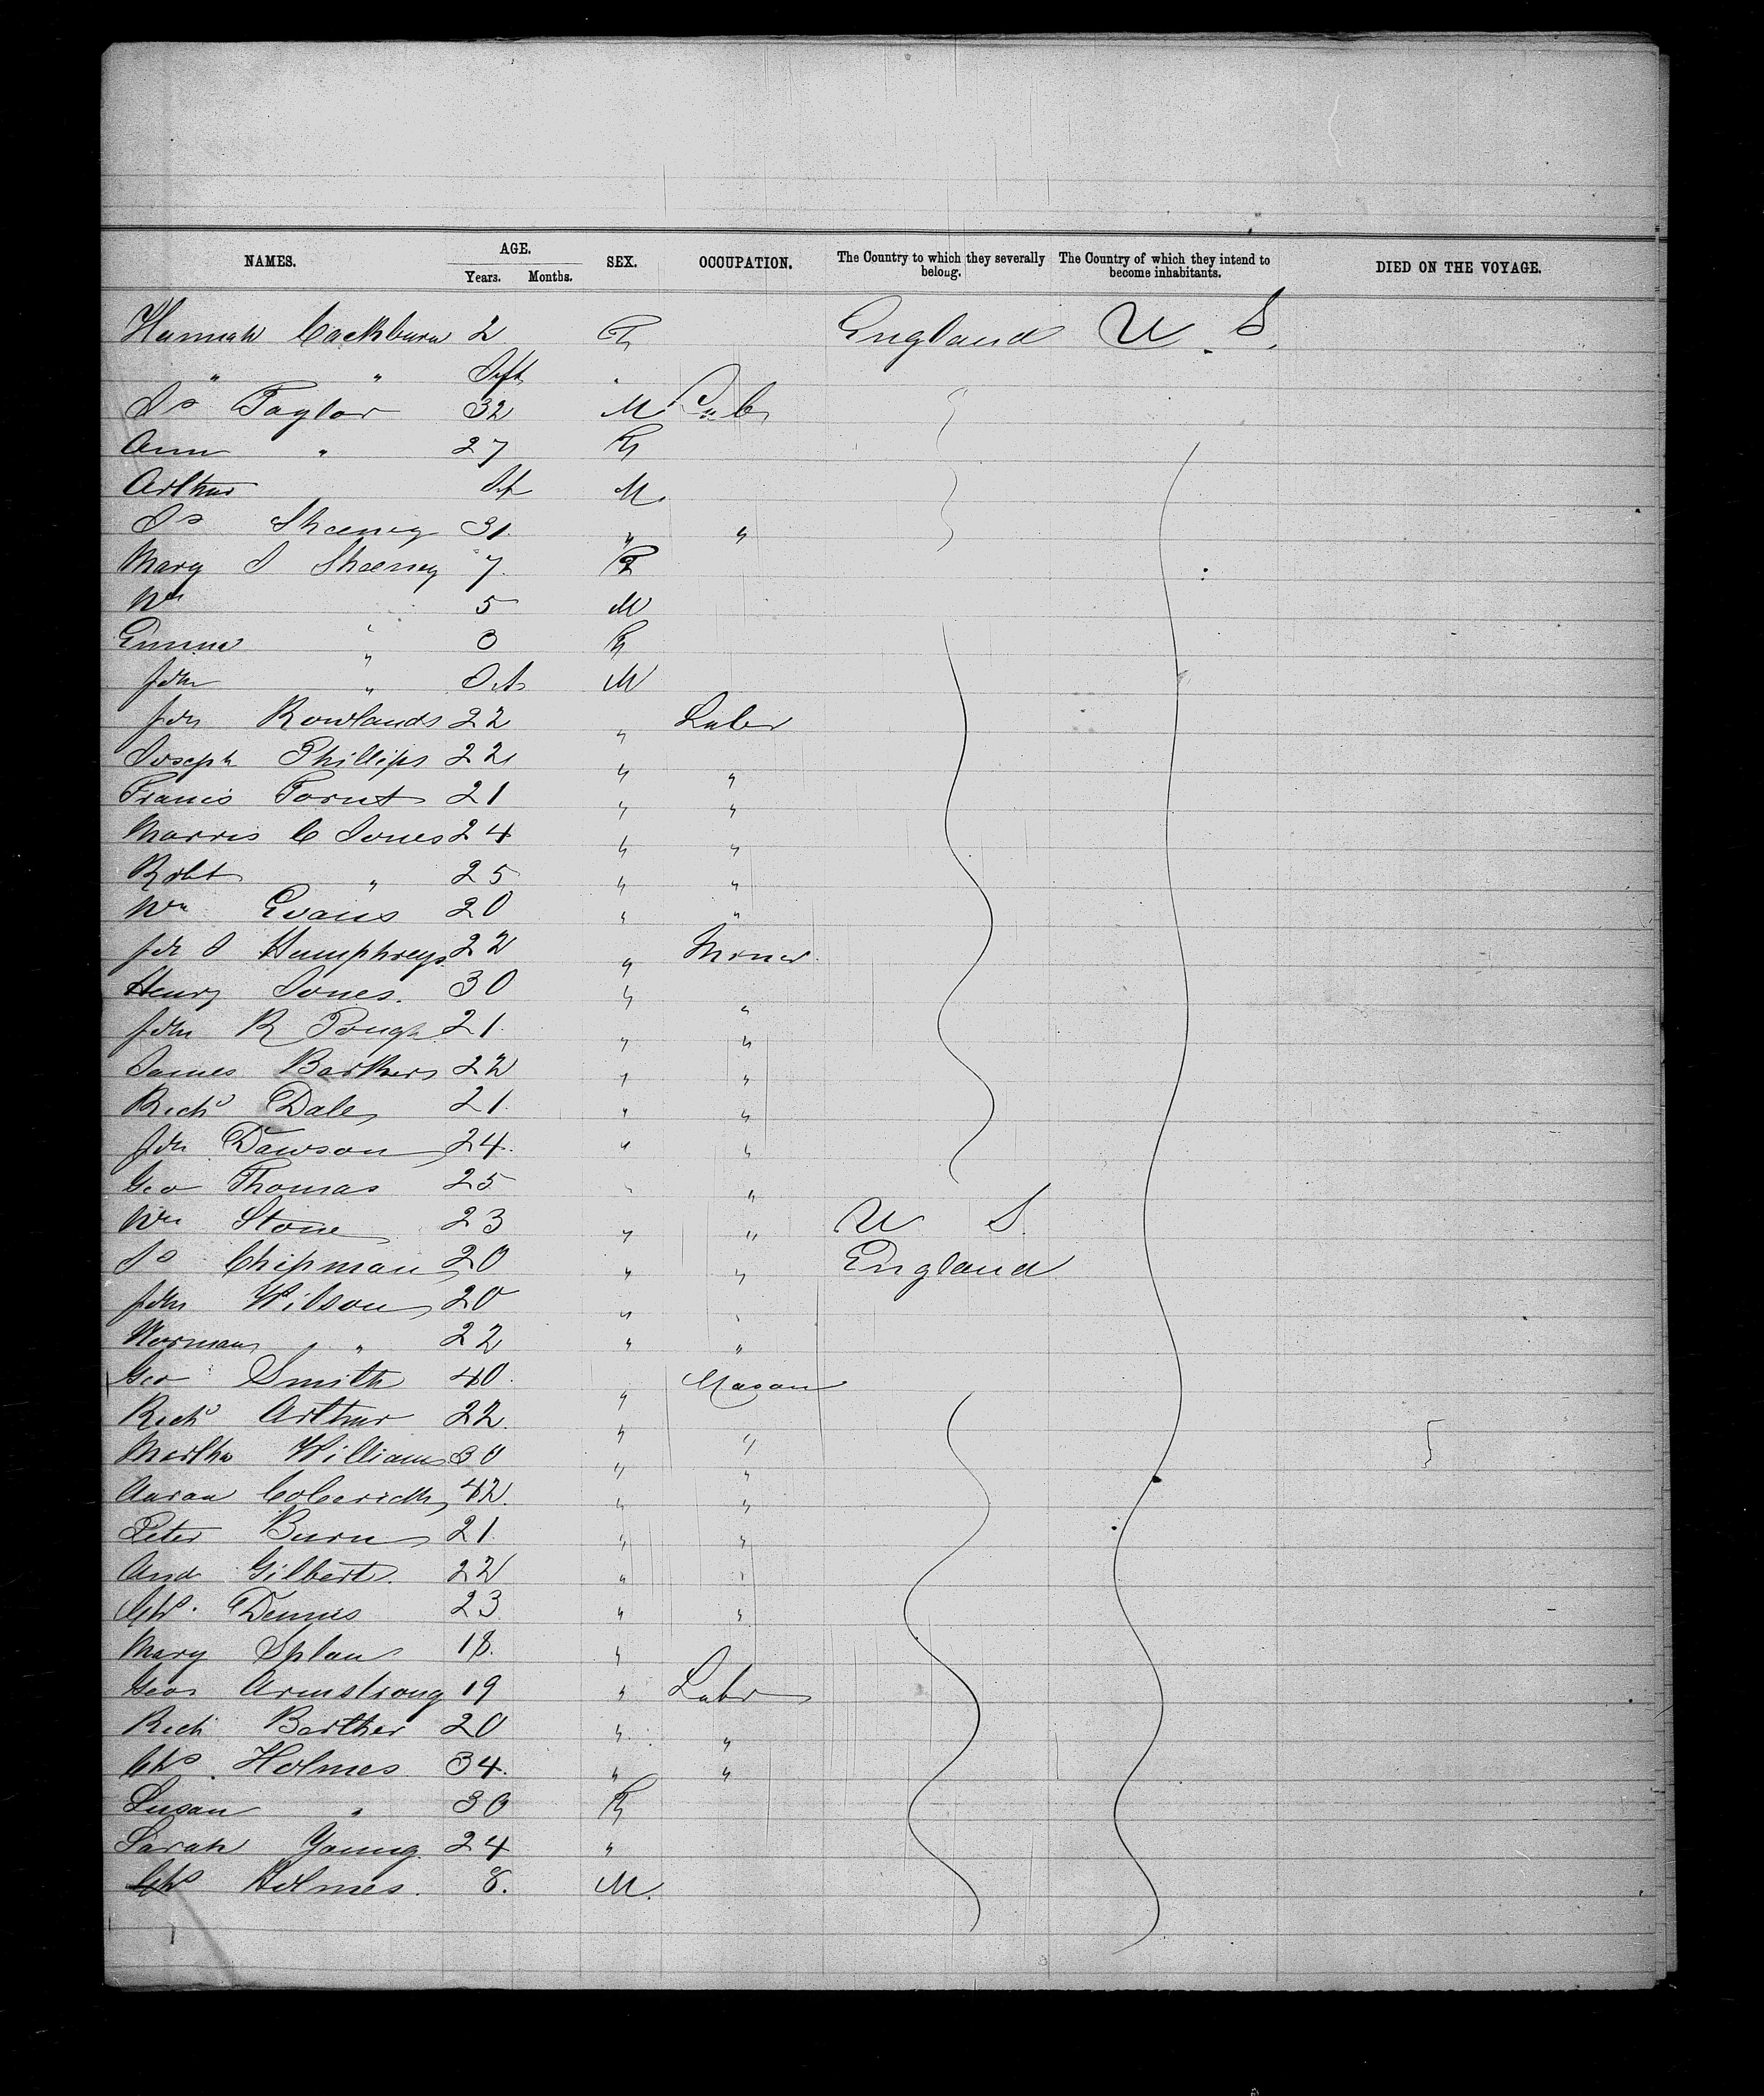 NAMES. AGE. SEX. OCCUPATION. The Country to which they severally belong. The Country of which they intend to become inhabitants. DIED ON THE VOYAGE.
Years. Months.
Hannah Cackburn 2 F England U. S.
" " Inft "
Js Taylor 32 M Labr
Ann " 27 F
Arthur Inf M.
Js Sheeney 31. " "
Mary J Sheeney 7. F
Wm 5 M
Emma " 3 F
John " Inf M
Jon Rowlands 22 " Labr
Joseph Phillips 22 " "
Francis 21 " "
Morris C Jones 24 " "
Robt " 25 " "
Wm Evans 20 " "
Jon J Humphreys 22 " Miner
Henry Jones. 30 " "
John R Pough 21. " "
James Barkers 22 " "
Richd Dale 21. " "
Jon Dawson 24. " "
Geo Thomas 25 " "
Wm Stone 23 " " U S
Js Chipman 20 " " England
John Wilson 20 " "
Norman " 22 " "
Geo Smith 40. " Mason
Richd Arthur 22. " "
Martha Williams 30 " "
Aaron 42. " "
Peter Burn 21. " "
And Gilbert. 22 " "
Chs. Dennis 23 " "
Mary Splan 18. "
Geo Armstrong 19 " Labr
Rich Barther 20 " "
Chs. Holmes 34. " "
Susan " 30 F
Sarah Young. 24 "
Chs Holmes. 8. M.